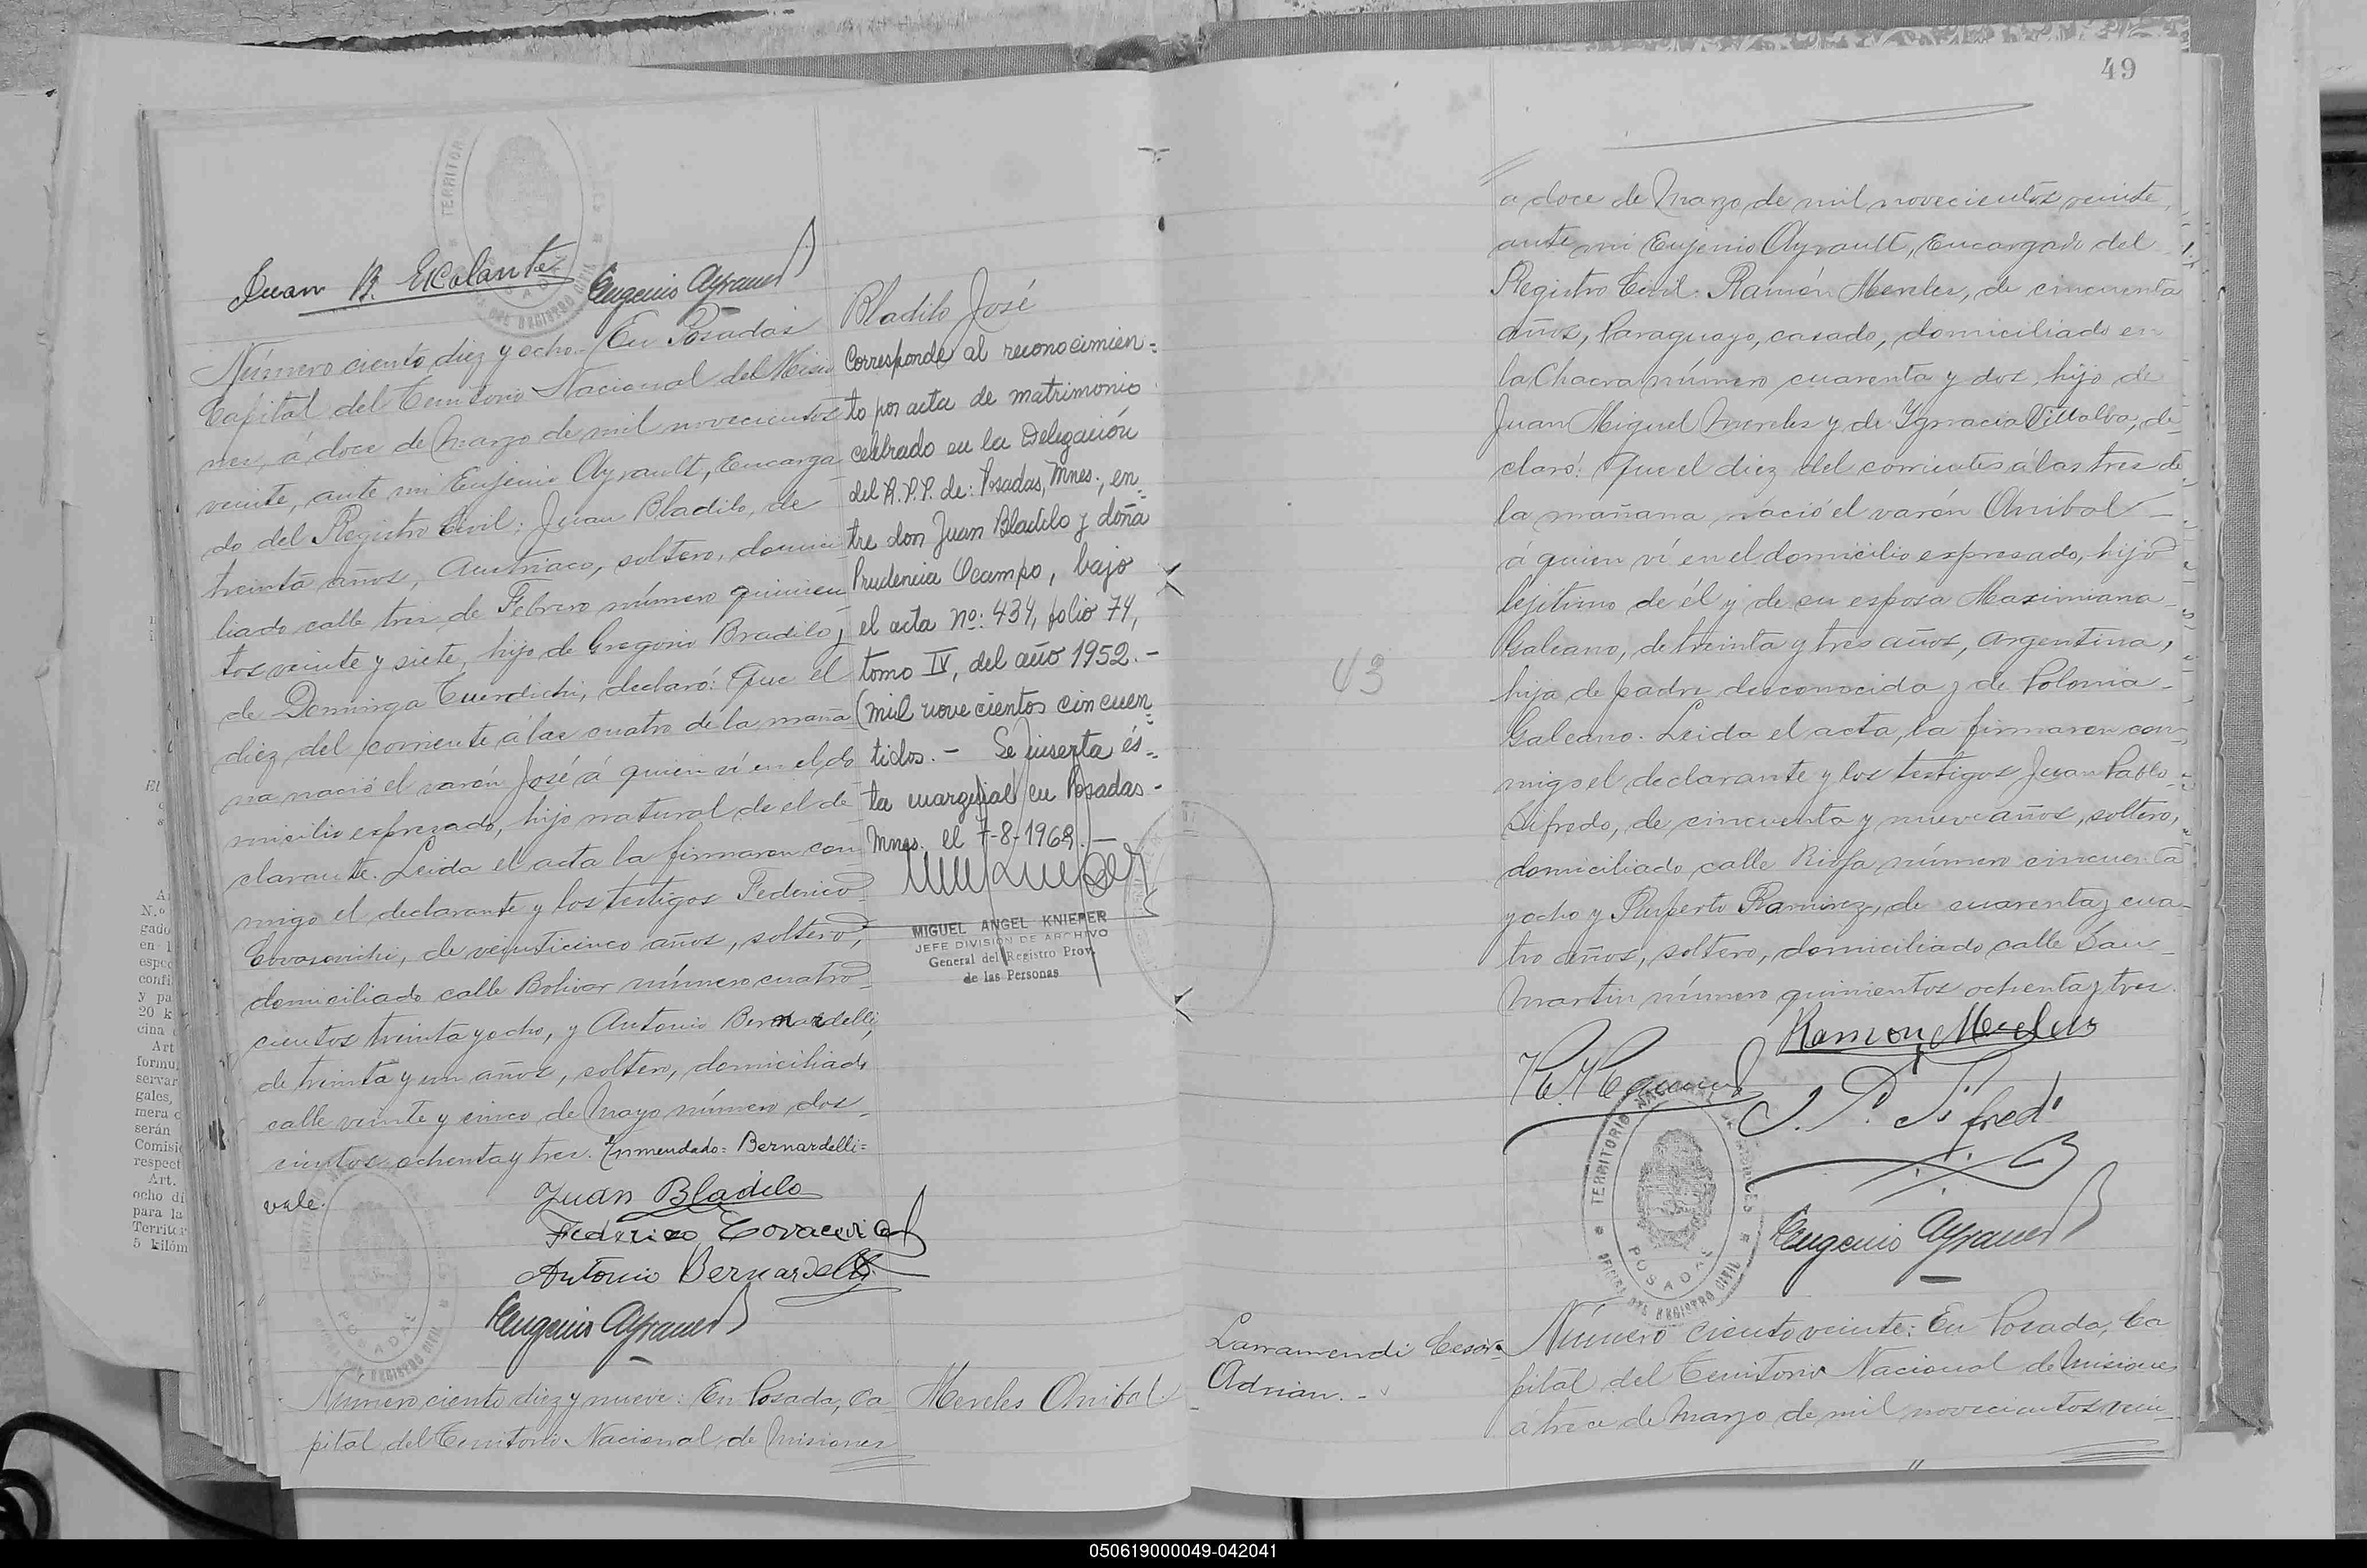 49
TERRITOR
Juan B. Escalante
Eugenio Ayrault
Número ciento diez y ocho. En Posadas
Capital del Territorio Nacional del Misio
nes, á doce de Marzo de mil novecientos
veinte, ante mi Eujenio Ayrault, Encarga
do del Registro Civil: Juan Bladilo, de
treinta años, Austriaco, soltero, domici
liado calle tres de Febrero número quinien
tos veinte y siete, hijo de Gregorio Bradilo y
de Dominga declaró: Que el
diez del corriente á las cuatro de la maña
na nació el varón José á quien ví en el do
micilio expresado, hijo natural de el de
clarante. Leida el acta la firmaron con
migo el declarante y los testigos Federico
Covasevichi, de veinticinco años, soltero,
domiciliado calle Bolivar número cuatro
cientos treinta y ocho, y Antonio Bernardelli,
de treinta y un años, soltero, domiciliado
calle veinte y cinco de Mayo número dos
cientos ochenta y tres. Enmendado: Bernardelli=
vale.
Juan Bladilo
Federico Covacevich
Antonio Bernardelli
Eugenio Ayrault
Bladilo José
Corresponde al reconocimien=
to por acta de matrimonio
celebrado en la Delegación
del R.P.P. de: Posadas, Mnes., en=
tre don Juan Bladilo y doña
Prudencia Ocampo, bajo
el acta nº: 434, folio 74,
tomo IV, del año 1952.-
(mil novecientos cincuen=
tidos.- Se inserta és=
ta marginal en Posadas-
Mnes. el 7-8-1968.-
MIGUEL ANGEL KNIEPER
JEFE DIVISIÓN DE ARCHIVO
General del Registro Prov.
de las Personas
Número ciento diez y nueve: En Posada, Ca
pital del Territorio Nacional de Misiones
Mereles Anibal
a doce de Marzo de mil novecientos veinte,
ante mi Eujenio Ayrault, Encargado del
Registro Civil: Ramón Mereles, de cincuenta
años, Paraguayo, casado, domiciliado en
la Chacra número cuarenta y dos, hijo de
Juan Miguel Mereles y de Ygnacia Villalba, de
claró: Que el diez del corrientes á las tres de
la mañana nació el varón Anibal
á quien ví en el domicilio expresado, hijo
lejitimo de él y de su esposa Maximiana
Galeano, de treinta y tres años, Argentina,
hija de padre desconocida y de Polonia
Galeano. Leida el acta, la firmaron con
migo el declarante y los testigos Juan Pablo
Sifredo, de cincuenta y nueve años, soltero,
domiciliado calle Rioja número cincuenta
y ocho y Ruperto Ramirez, de cuarenta y cua
tro años, soltero, domiciliado calle San
Martin número quinientos ochenta y tres.
Ramon Mereles
J. P. Sifredi
TERRITORIO NACIONAL
POSADAS
OFICINA DEL REGISTRO CIVIL
Eugenio Ayrault
Larramendi Cesar
Adrián.-
Número ciento veinte: En Posada, Ca
pital del Territorio Nacional de Misiones
a trece de Marzo de mil novecientos vein
050619000049-042041